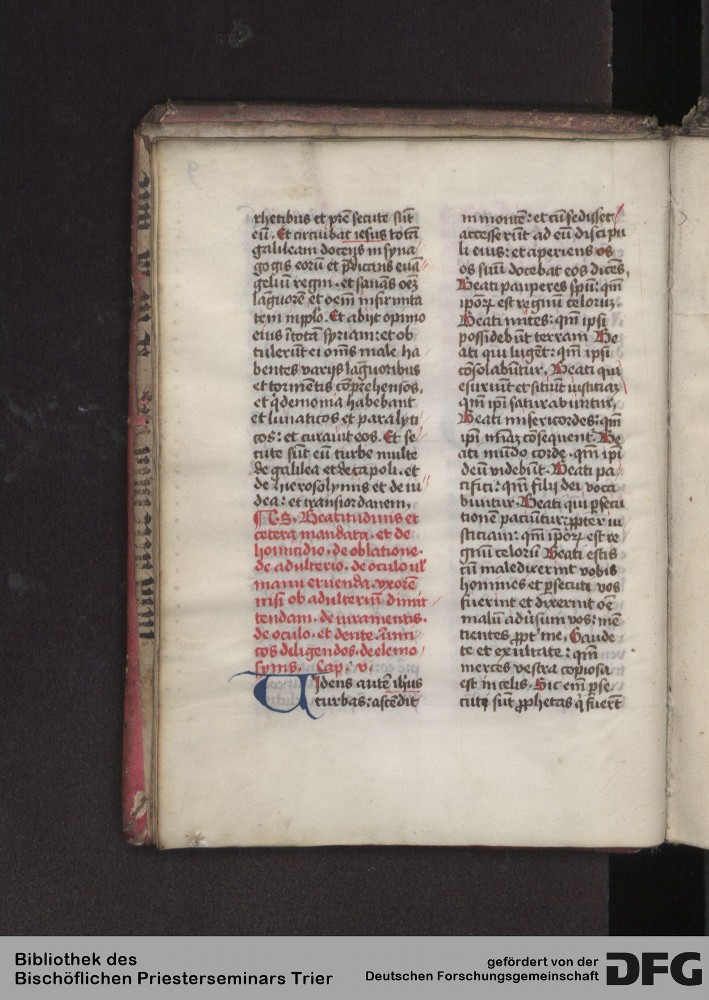 rhetibus et pr̄e secute sūt
eū. Et circuibat iesus totā
galileam docens in syna
gogis eorū et p̄dicans euā
geliū regni. et sanās oēʒ
lāguorē et oēm infirmita
tem in pplo. Et abijt opinio
eius ī totā syriam: et ob
tulerūt ei om̄s male ha
bentes varijs lāguoribus
et tormētis cōprehensos,
et q̇ demonia habebant
et lunaticos et paralyti
cos: et curauit eos. Et se
cute sūt eū turbe multe
de galilea et decapoli. et
de hierosolymis et de iu
dea: et trans iordanem,
De Beatitudinis et
cetera mandata. et de
homicidio. de oblatione.
de adulterio. de oculo ul̄
manu eruenda. vxorē
nisi ob adulteriū dimit
tendam. de iuramentis.
de oculo. et dente. inim
cos diligendos. de elemo
synis. Cap. v.
Uidens autē ih̄us
turbas: ascēdit
in montē: et cū sedisset
accesserūt ad eū discipu
li eius: et aperiens os
os suū docebat eos dicēs,
Beati pauperes sp̄u: qm̄
ip̄oꝝ est regnū celoruʒ.
Beati mites: qm̄ ipsi
possidebūt terram. Be
ati qui lugēt: qm̄ ipsi
cōsolabūtur. Beati qui
esuriūt et sitiūt iustitiaʒ
qm̄ ip̄i saturabuntur,
Beati misericordes: qm̄
ip̄i mīaʒ cōsequent̄. Be
ati mūdo corde. qm̄ ip̄i
deū videbūt. Beati pa
cifici: qm̄ filij dei voca
buntur. Beati qui ꝑsecu
tionē patiūtur: ꝓpter iu
sticiam: qm̄ ip̄oꝝ est re
gnū celorū. Beati estis
cū maledixerint vobis
homines et ꝑsecute vos
fuerint et dixerint oē
malū aduersum vos: mē
tientes ꝓpt̄ me, Gaude
te et exultate: qm̄
merces vestra copiosa
est in celis. Sic em̄ ꝑse
cuti sūt ꝓphetas q̇ fuerūt
Bibliothek des
Bischöflichen Priesterseminars Trier
gefördert von der
Deutschen Forschungsgemeinschaft
DFG